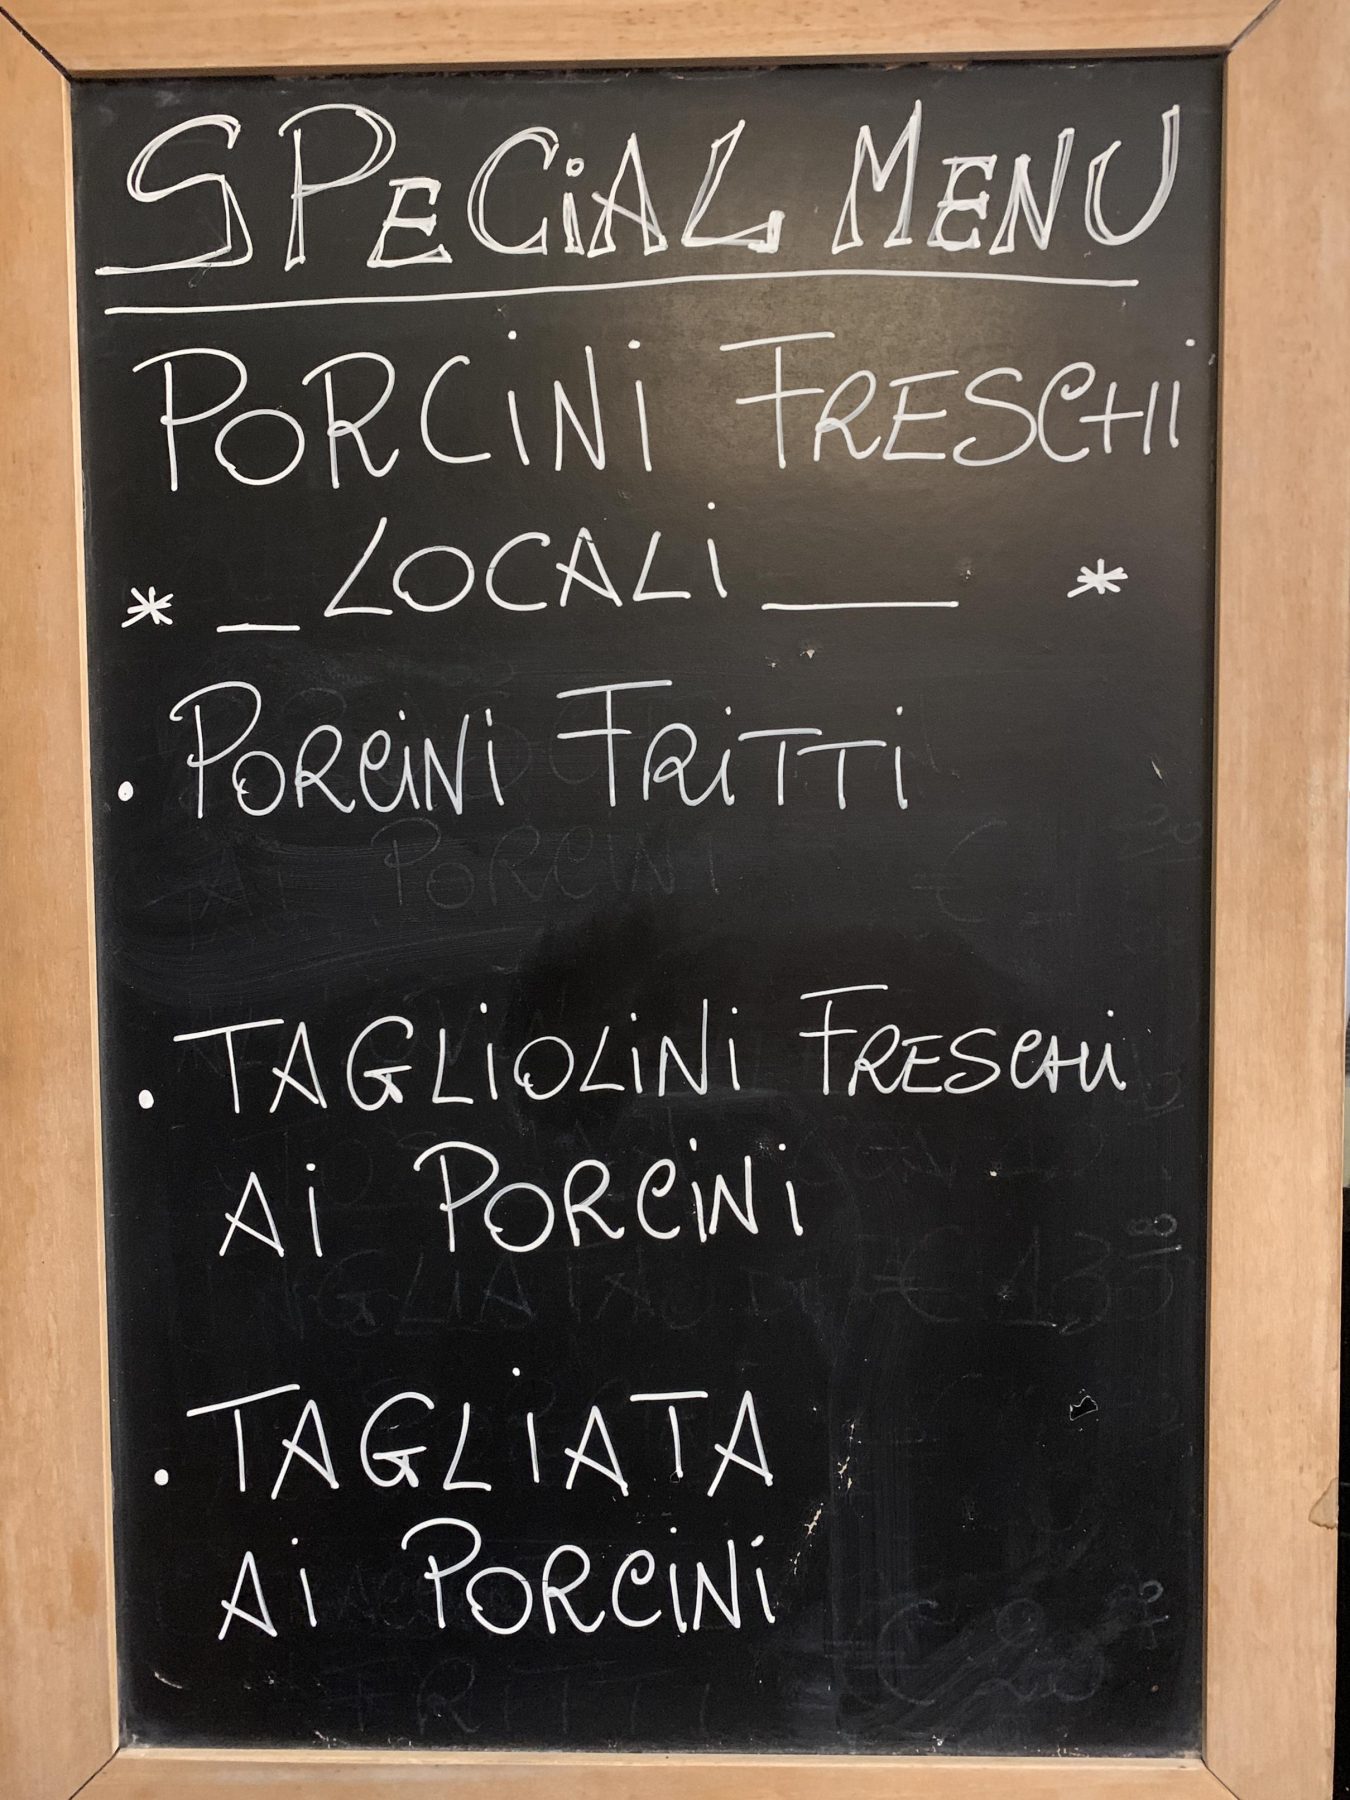 SPECiAL MENU
PORCiNi FRESCHi
* _ LOCALi ___ *
. PORCiNi FRiTTi
. TAGLiOLiNi FRESCHi
Ai PORCiNi
. TAGLiATA
Ai PORCiNi